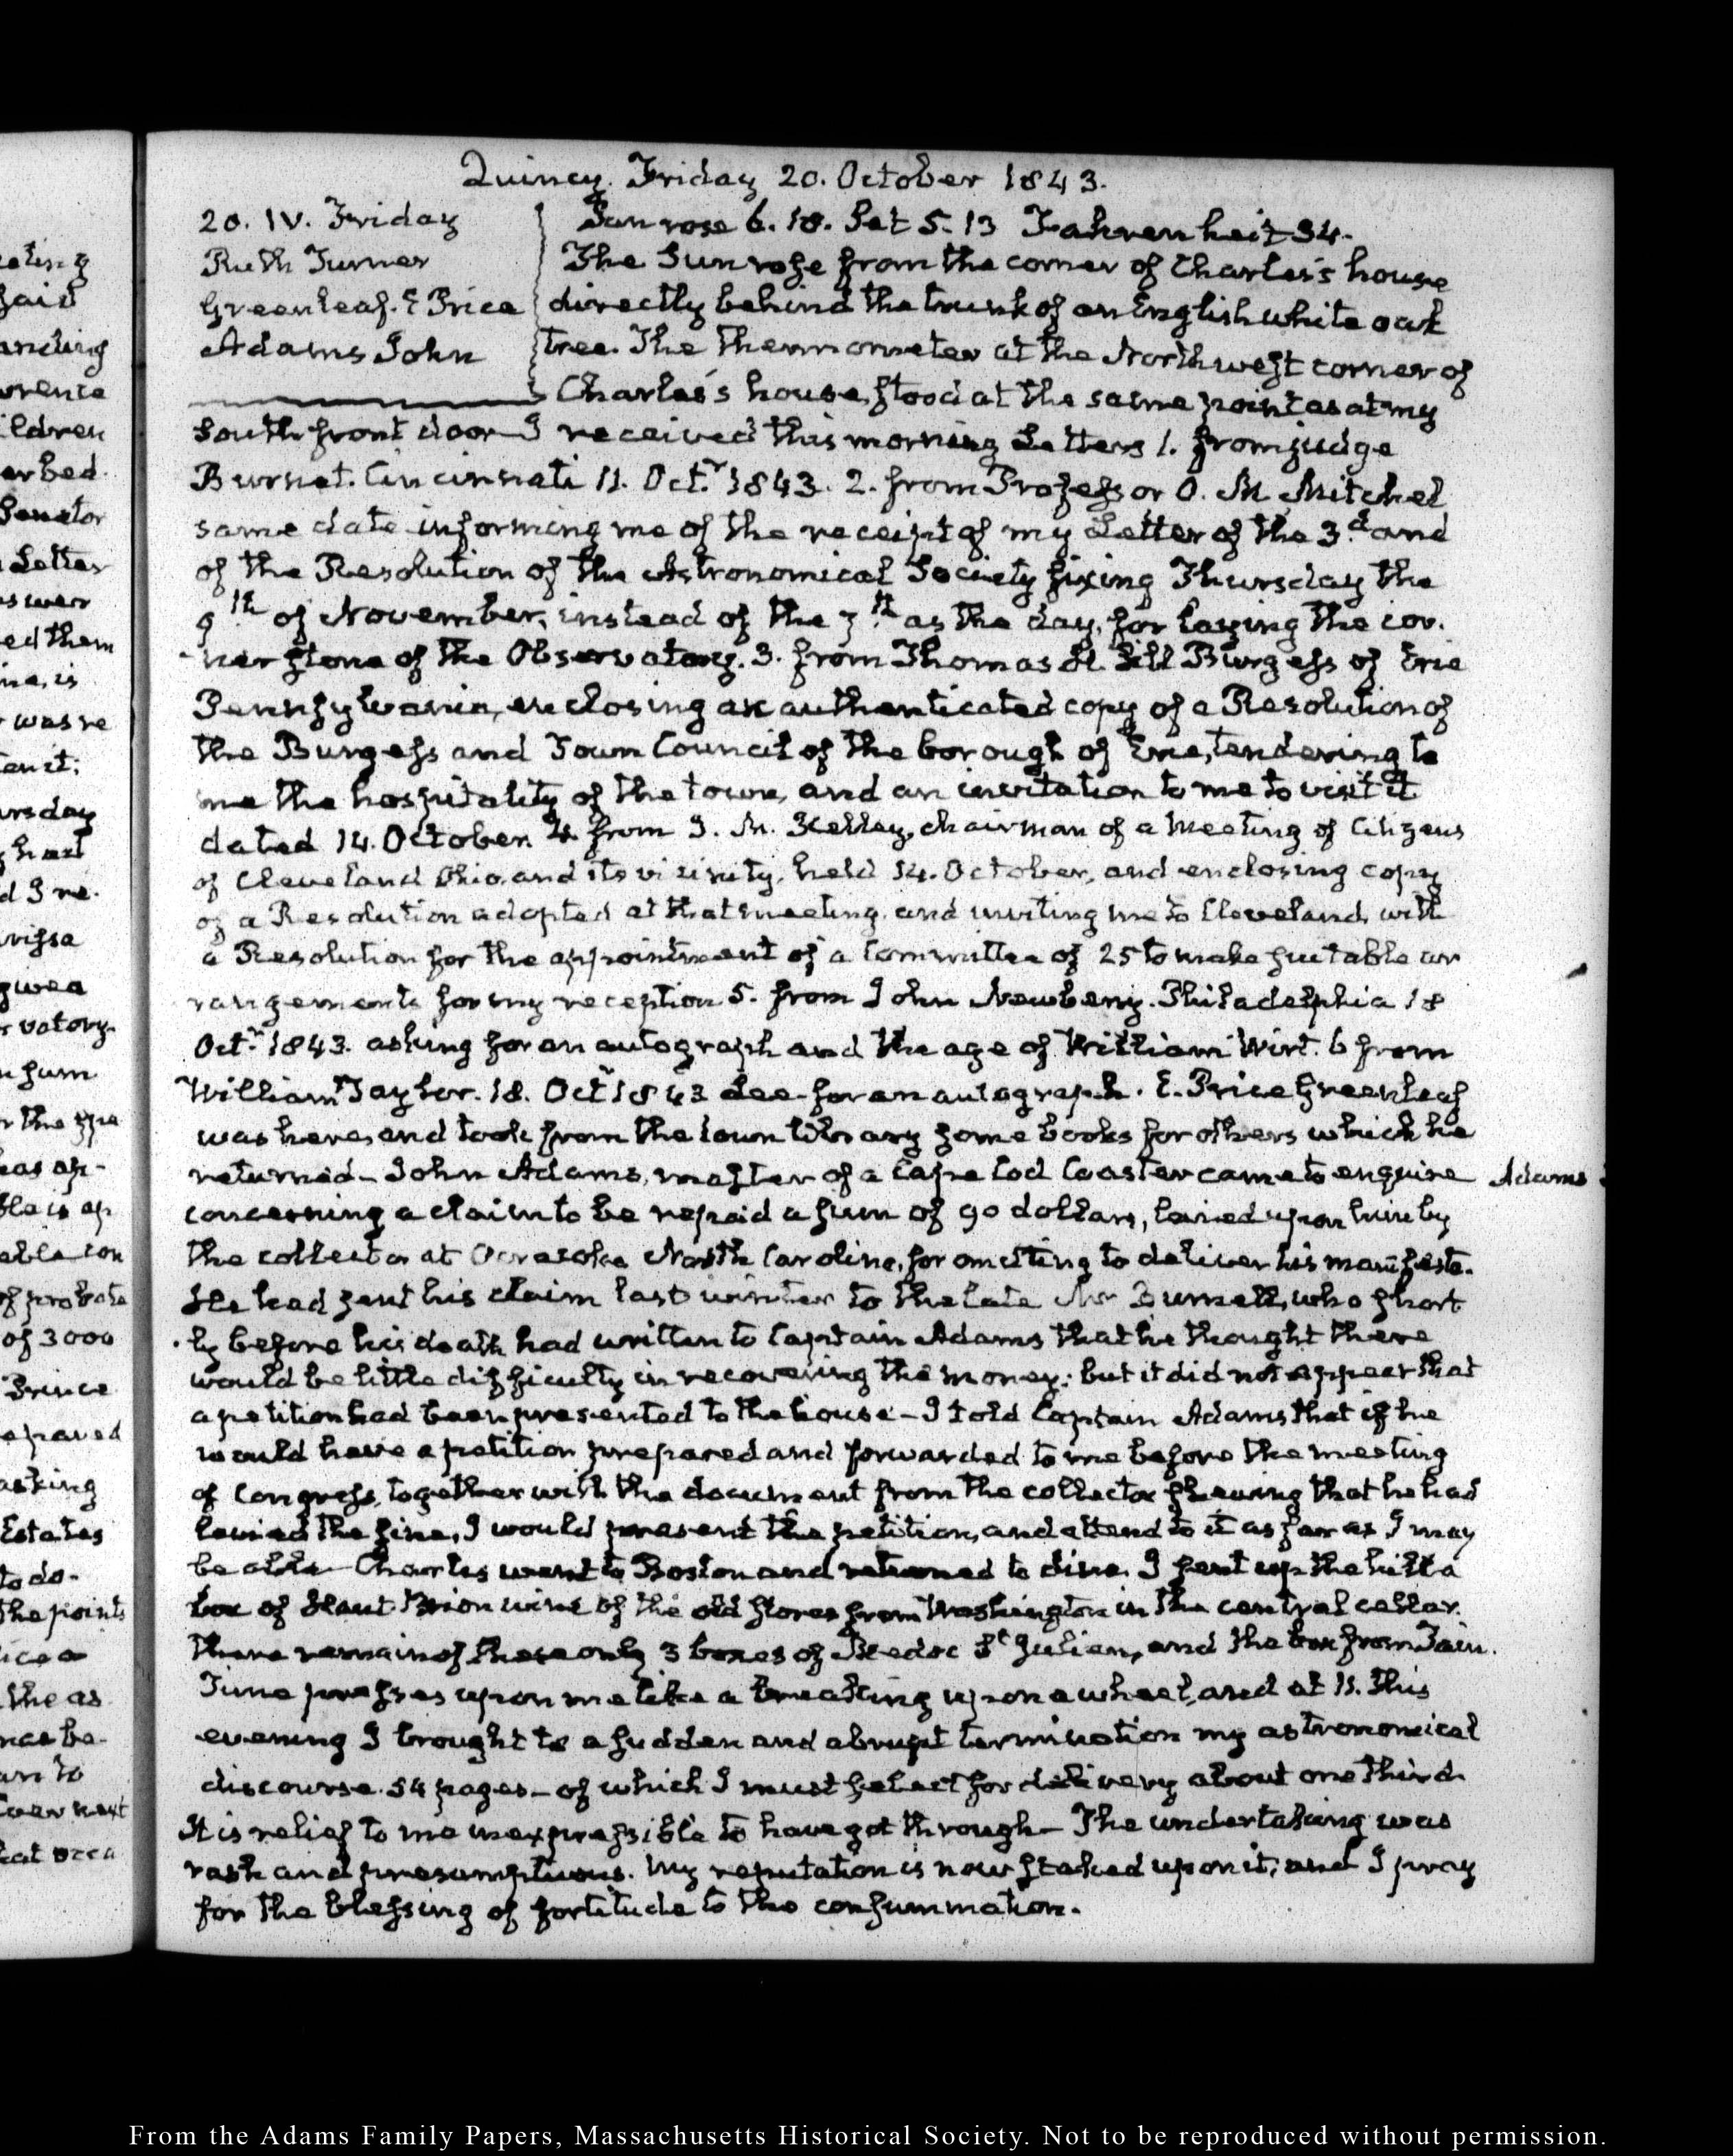 Quincy. Friday 20. October 1843.
20. IV. Friday
Ruth Turner
Greenleaf. E Price
Adams John
Sun rose 6. 18. Set 5. 13 Fahrenheit 34.
The Sun rose from the corner of Charles's house
directly behind the trunk of an English white oak
tree. The thermometer at the North west corner of
Charles's house, stood at the same point as at my
South front door— I received this morning Letters 1. from judge
Burnet. Cincinnati 11. Octr. 1843. 2. from Professor O. M. Mitchel
same date informing me of the receipt of my Letter of the 3d. and
of the Resolution of the Astronomical Society fixing Thursday the
9th of November, instead of the 7th as the day, for laying the cor-
-ner stone of the Observatory. 3. from Thomas H. Sill Burgess of Erie
Pennsylvania, enclosing an authenticated copy of a Resolution of
the Burgess and Town Council of the borough of Erie, tendering to
me the hospitality of the town, and an invitation to me to visit it
dated 14. October. 4. from J. M. Kelley, chairman of a Meeting of Citizens
of Cleveland Ohio, and its vicinity, held 14. October, and enclosing copy
of a Resolution adopted at that meeting, and inviting me to Cleveland, with
a Resolution for the appointment of a Committee of 25 to make suitable ar
rangements for my reception 5. from John Newberry. Philadelphia 18
Octr. 1843. asking for an autograph and the age of William Wirt. 6 from
William Taylor. 18. Octr 1843 for an autograph. E. Price Greenleaf
was here, and took from the town library some books for others which he
returned— John Adams, master of a Cape Cod Coaster came to enquire Adams
concerning a claim to be repaid a sum of 90 dollars, levied upon him by
the collector at Ocracoke North Carolina, for omitting to deliver his manifest.
He had sent his claim last winter to the late Mr Burnell, who short
-ly before his death had written to Captain Adams that he thought there
would be little difficulty in recovering the money: but it did not appear that
a petition had been presented to the house— I told Captain Adams that if he
would have a petition prepared and forwarded to me before the meeting
of Congress, together with the document from the collector shewing that he had
levied the fine, I would present the petition, and attend to it as far as I may
be able— Charles went to Boston and returned to dine. I sent up the hill a
box of Haut Brion wine of the old stores from Washington in the central cellar.
There remain of these only 3 boxes of Medoc St Julien, and the box from
Time presses upon me like a breaking upon a wheel, and at 11. this
evening I brought to a sudden and abrupt termination my astronomical
discourse. 54 pages— of which I must select for delivery about one third.
It is relief to me inexpressible to have got through— The undertaking was
rash and presumptuous. My reputation is now staked upon it, and I pray
for the blessing of fortitude to the consummation.
From the Adams Family Papers, Massachusetts Historical Society. Not to be reproduced without permission.